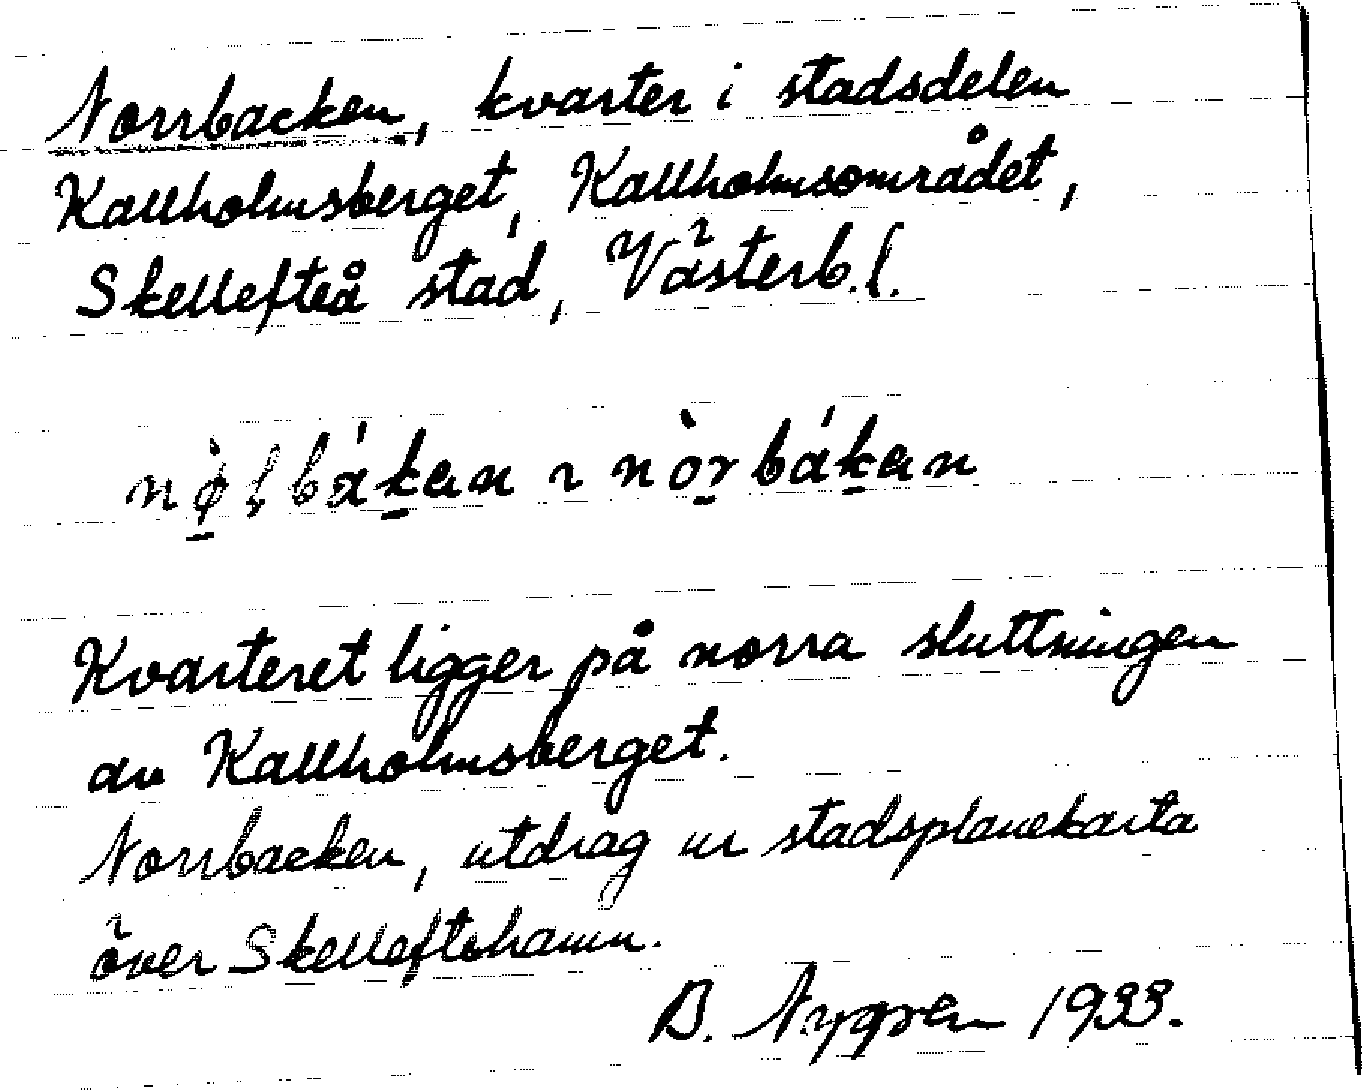 Norrbacken, kvarter i stadsdelen
Kallholmsberget, Kallholmsområdet,
Skellefteå stad, Västerb.l.
nò̱rbákan
Kvarteret ligger på norra sluttningen
av Kallholmsberget.
Norrbacken, utdrag ur stadsplanekarta
över Skelleftehamn.
B. Nygren 1933.